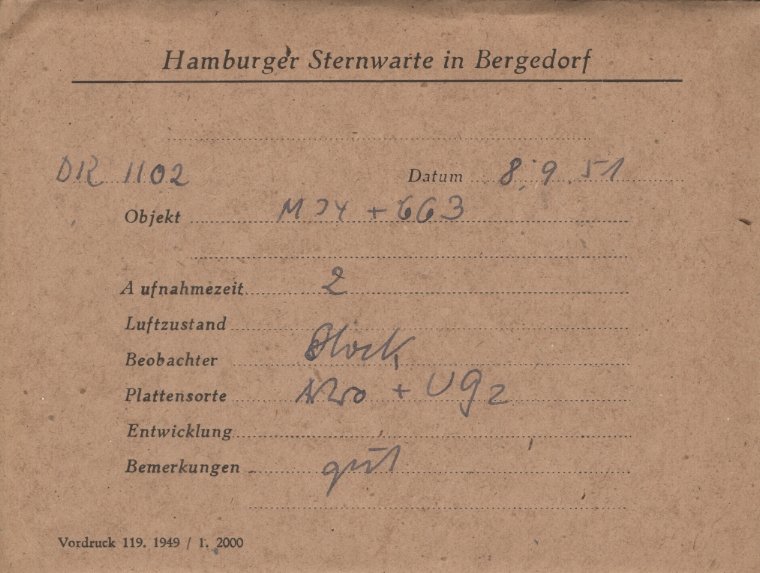 Hamburger Sternwarte in Bergedorf
DR 1102 Datum 8.9.51
Objekt M 34 + 663
Aufnahmezeit 2
Luftzustand
Beobachter
Plattensorte + UG2
Entwicklung
Bemerkungen gut
Vordruck 119. 1949 / 1. 2000